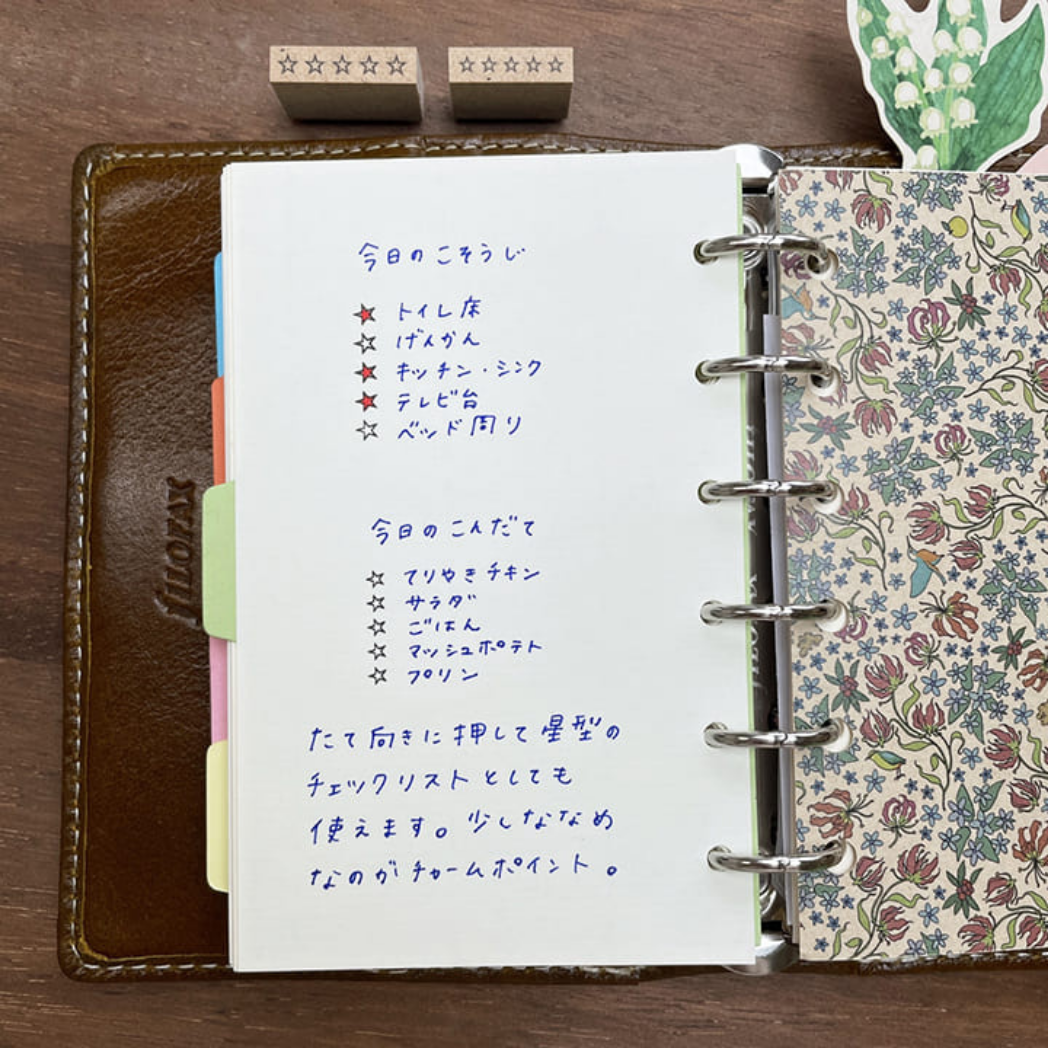 ☆☆☆☆☆
☆☆☆☆☆
今日のこそうじ
★ トイレ床
☆ げんかん
★ キッチン・シンク
★ テレビ台
☆ ベッド周り
今日のこんだて
☆ てりやきチキン
☆ サラダ
☆ ごはん
☆ マッシュポテト
☆ プリン
たて向きに押して星型の
チェックリストとしても
使えます。少しななめ
なのがチャームポイント。
fILOFAX